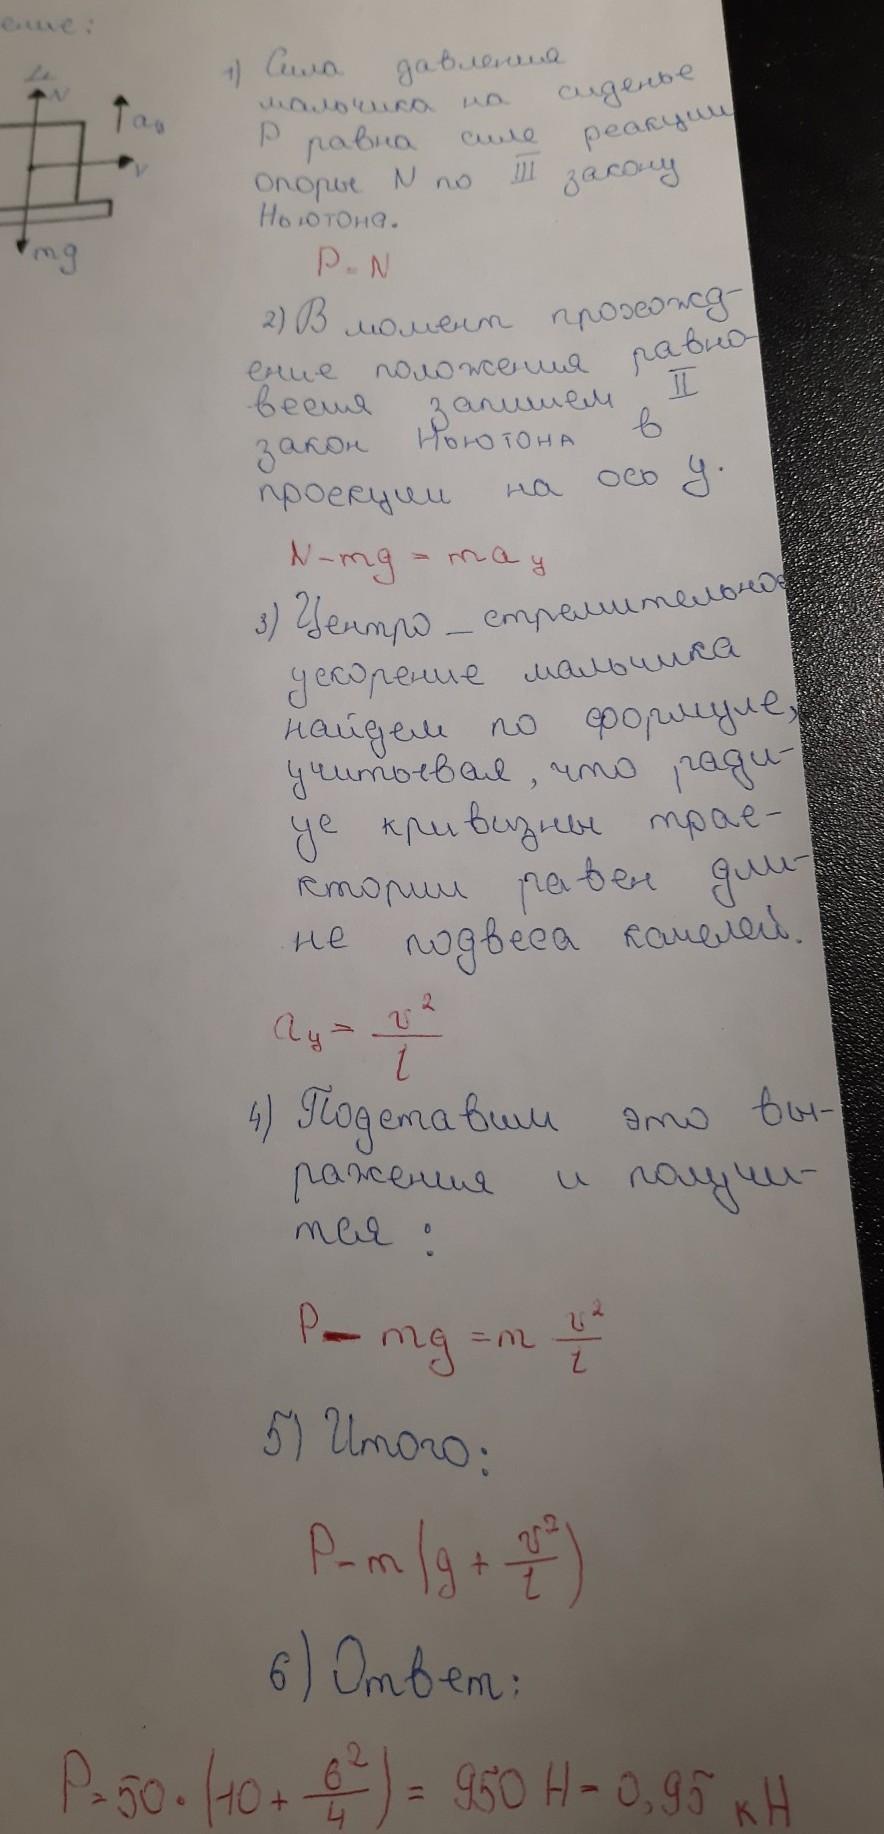 ение:
N
a₀
v
mg
1) Сила давления
мальчика на сиденье
P равна силе реакции
опоры N по III закону
Ньютона.
P = N
2) В момент прохожд-
ение положения равно-
весия запишем II
закон Ньютона в
проекции на ось y.
N - mg = ma y
3) Центро - стремительное
ускорение мальчика
найдем по формуле,
учитывая, что ради-
ус кривизны трае-
ктории равен дли-
не подвеса качелей.
a y = v²/l
4) Подставим это вы-
ражения и получи-
тся :
P - mg = m v²/l
5) Итого:
P = m (g + v²/l)
6) Ответ:
P = 50 · (10 + 6²/4) = 950 Н = 0,95 кН